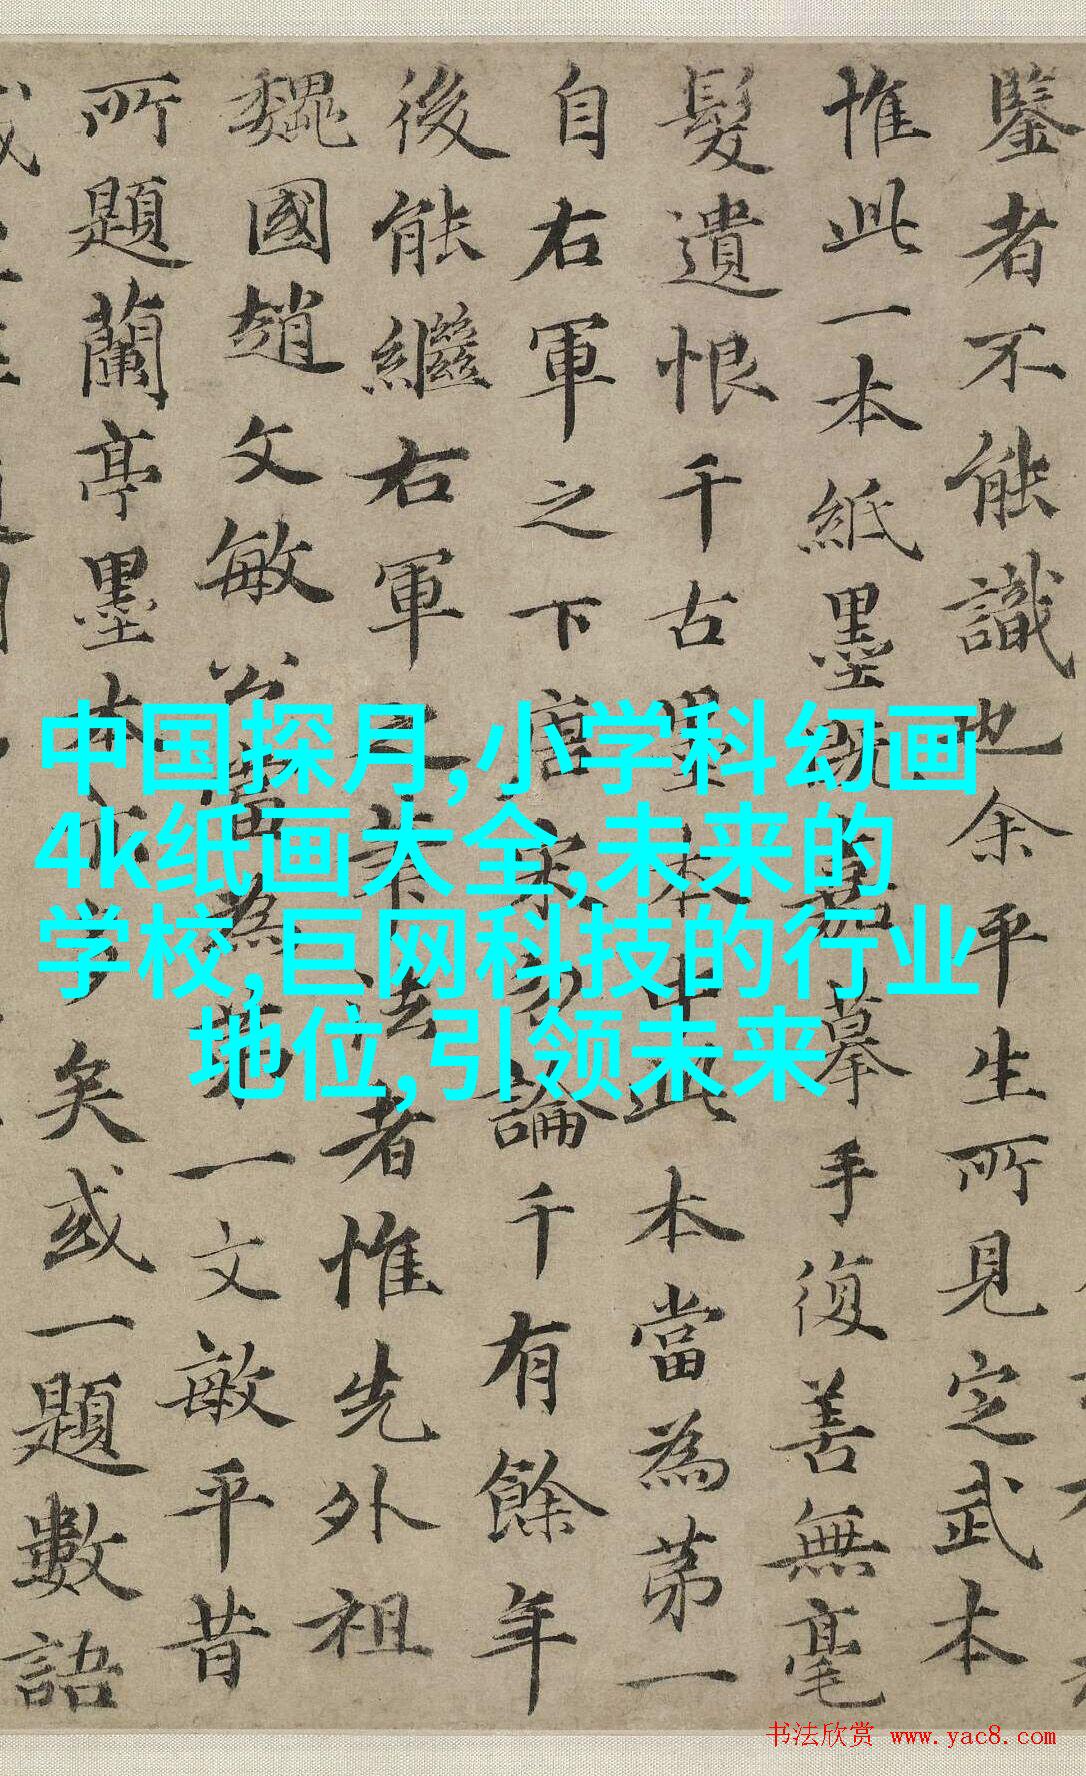 鑒者不能識也余平生所見定武本
惟此一本紙墨既嘉摹手復善無毫
髮遺恨千古墨本中此本當為第一
自右軍之下唐宋勿論千有餘年
後能繼右軍之筆法者惟先外祖
魏國趙文敏公當為第一文敏平昔
所題蘭亭墨本亦多矣或一題數語
中国探月,小学科幻画
4k纸画大全,未来的
学校,巨网科技的行业
地位,引领未来
书法欣赏 www.yac8.com